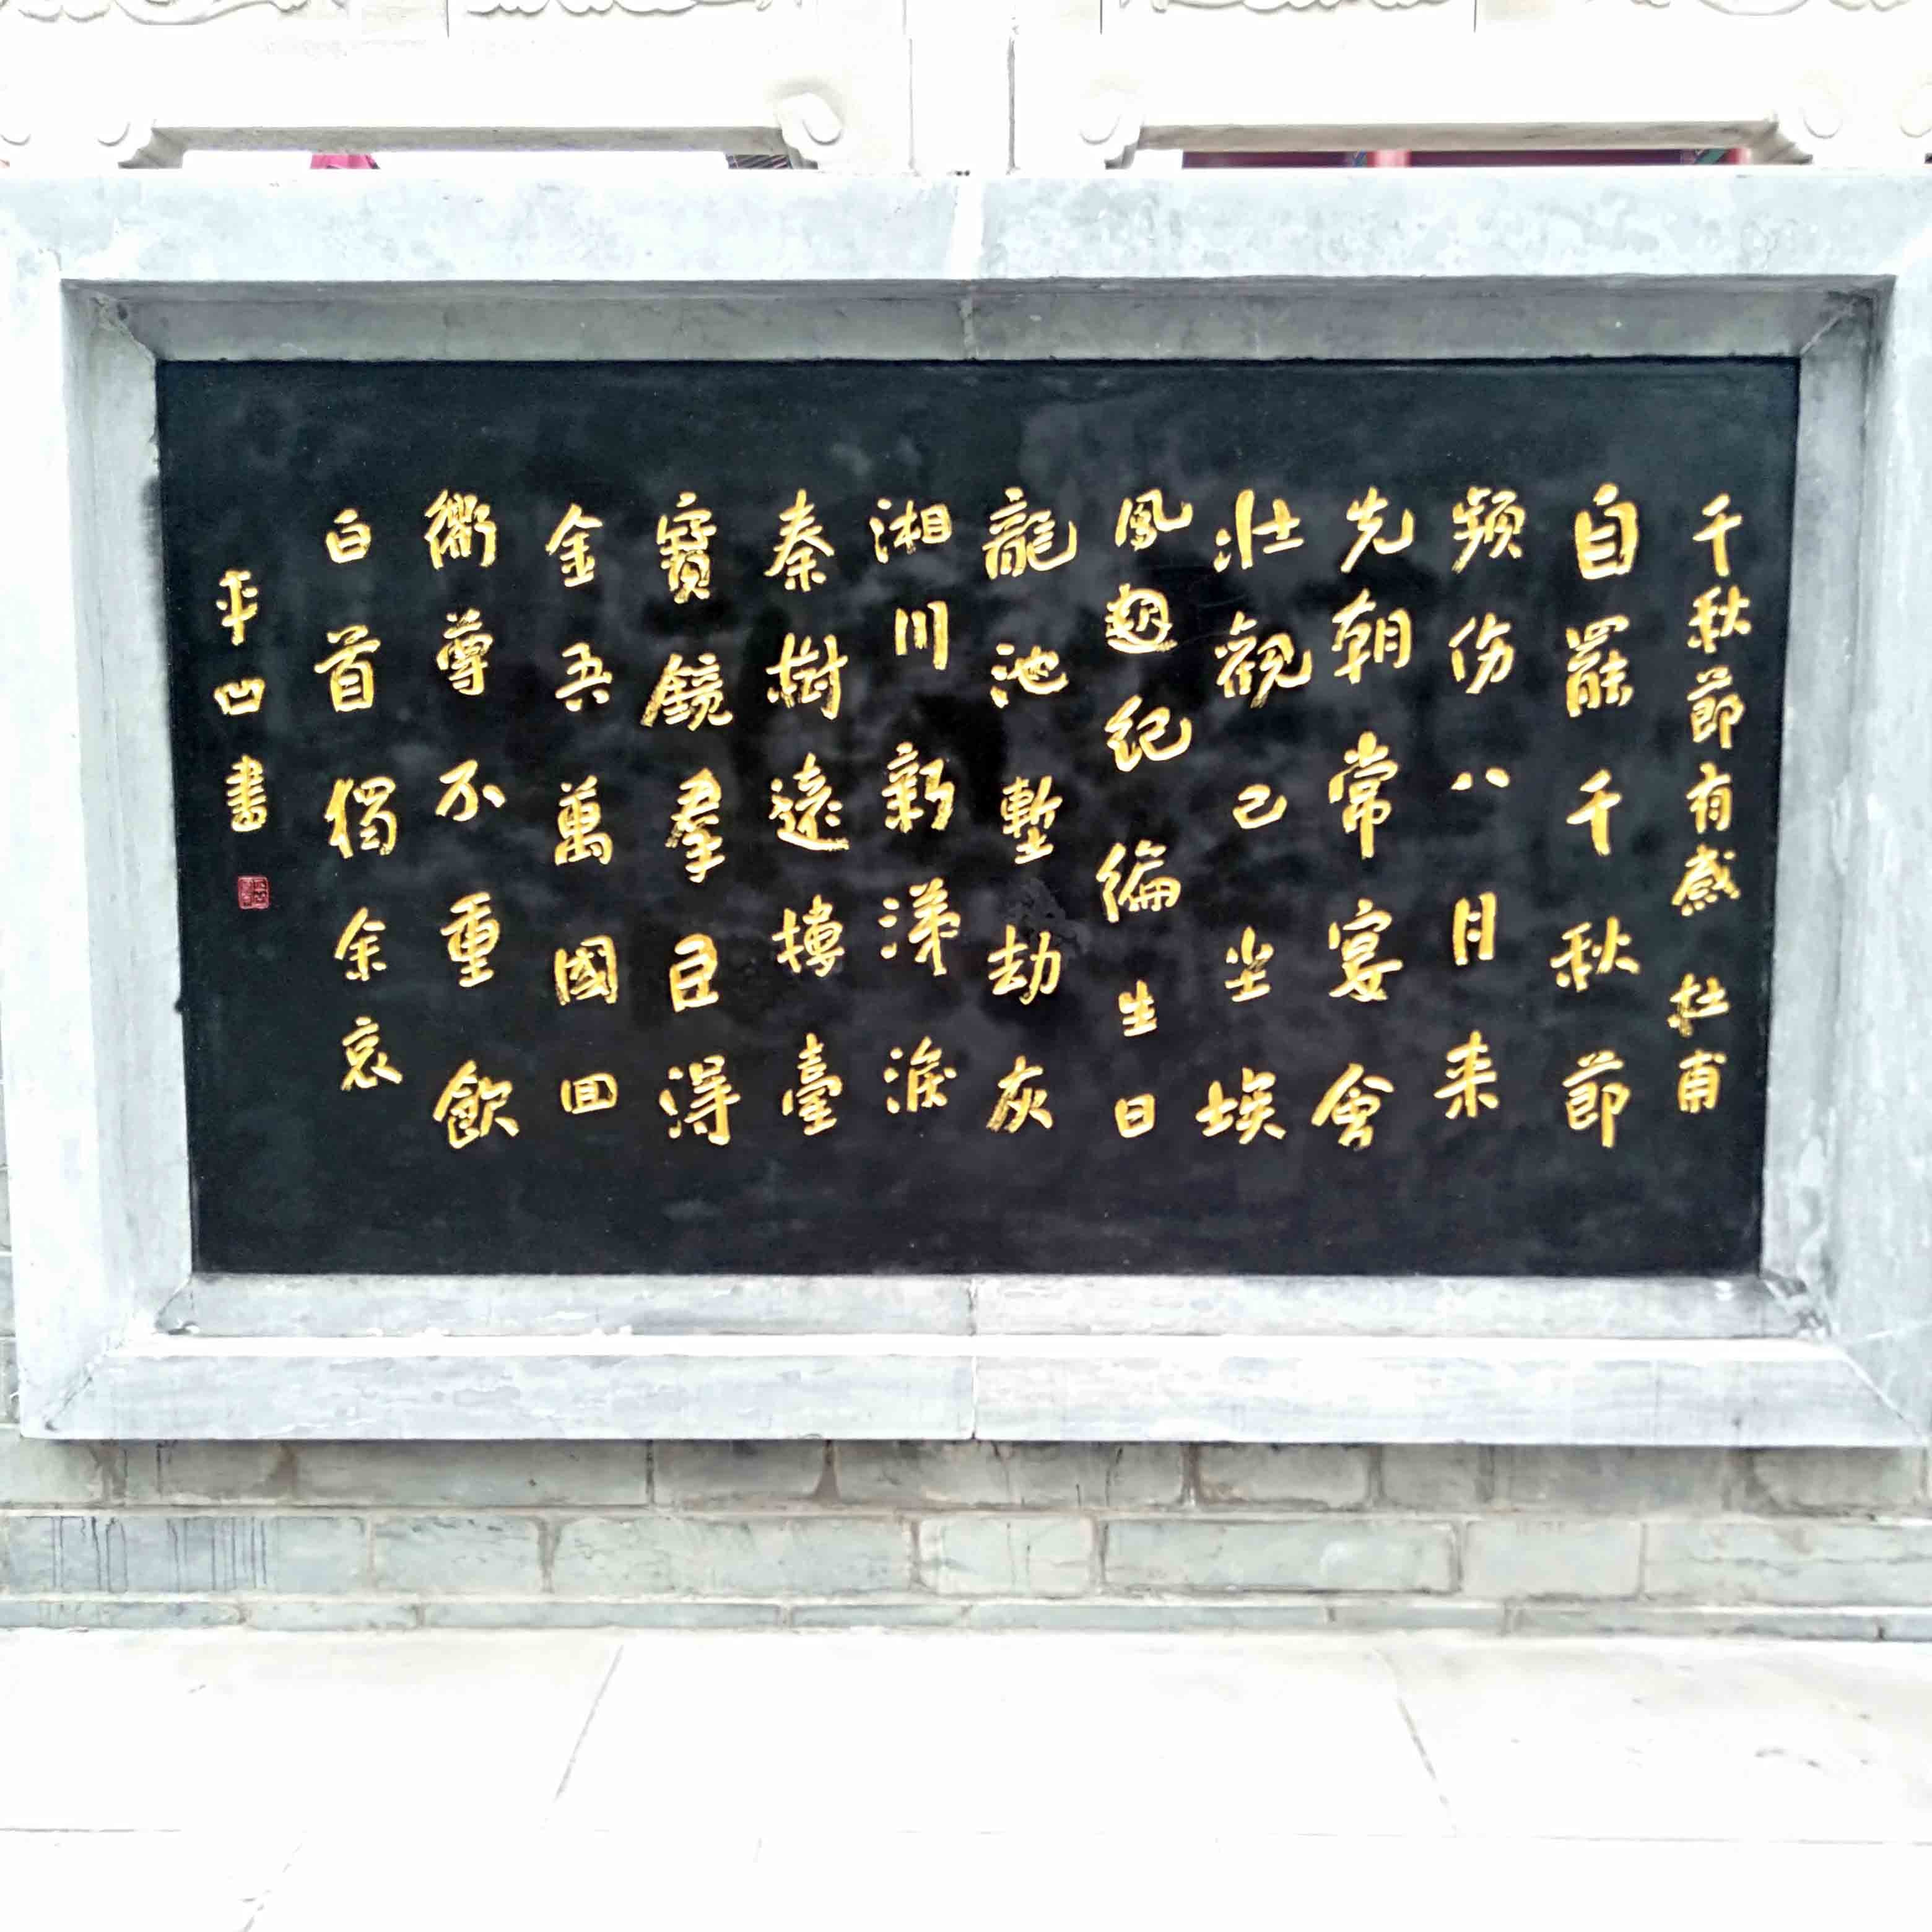 千秋節有感 杜甫
自罷千秋節
頻傷八月来
先朝常宴會
壮觀已尘埃
鳳𥿄紀編生日
龍池塹劫灰
湘川新涕淚
秦樹遠樓臺
寶鏡羣臣得
金吾萬國回
衢尊不重飲
白首獨余哀
平凹書